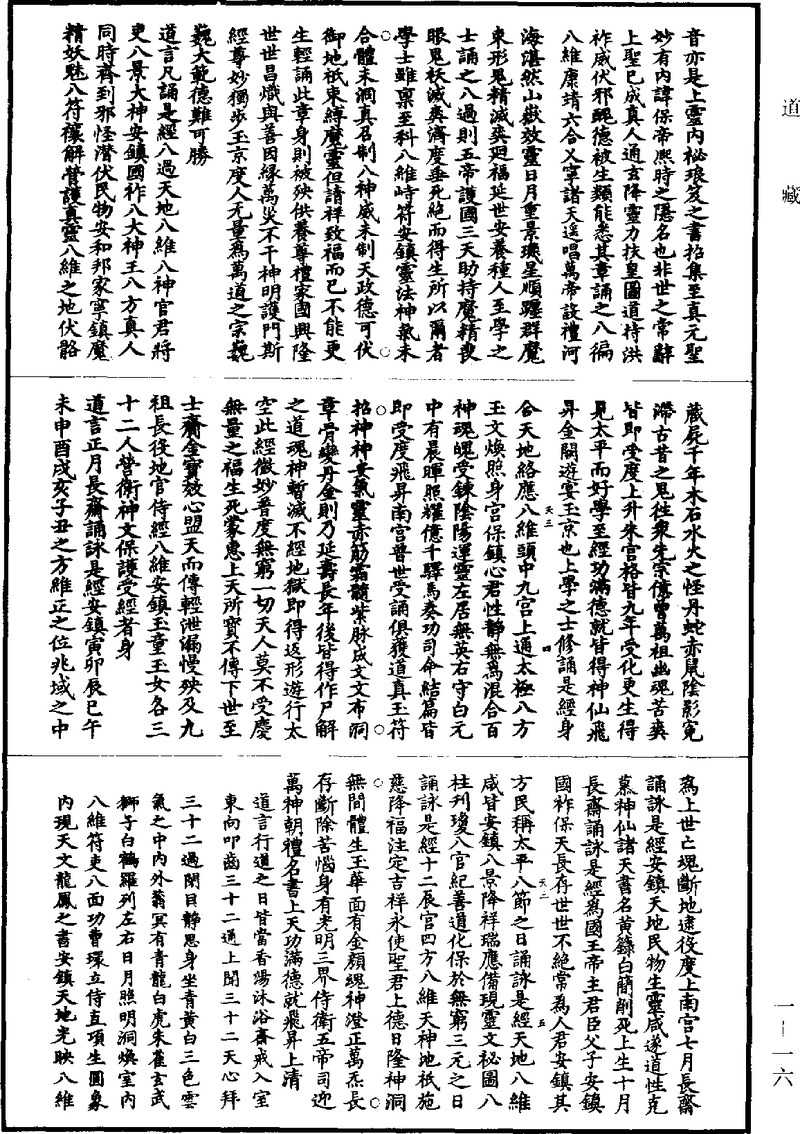 道藏
音亦是上靈內祕琅笈之書招集至真元聖
妙有內諱保帝熙時之隱名也非世之常辭
上聖已成真人通玄降靈力扶皇圖道持洪
祚威伏邪醜德被生類能悉其章誦之八徧
八維康靖六合乂寧諸天遥唱萬帝設禮河
海湛然山嶽效靈日月重景璣星順躔群魔
束形鬼精滅爽廻福延世安養種人至學之
士誦之八過則五帝護國三天助持魔精喪
眼鬼袄滅爽濟度垂死絶而得生所以爾者
學士雖稟至科八維峙符安鎮靈法神氣未
合體未洞真召制八神威未制天政德可伏
御地祇束縛魔靈但請祥致福而已不能更
生輕誦此章身則被殃供養尊禮家國興隆
世世昌熾與善因緣萬災不干神明護門斯
經尊妙獨步玉京度人无量爲萬道之宗巍
巍大範德難可勝
道言凡誦是經八過天地八維八神官君將
吏八景大神安鎮國祚八大神王八方真人
同時齊到邪怪潛伏民物安和邦家寧鎮魔
精妖魅八符禳解營護真靈八維之地伏骼
藏屍千年木石水火之怪丹蛇赤鼠陰影寃
滯古昔之鬼往衆先宗億曾萬祖幽魂苦爽
皆即受度上升朱宫格皆九年受化更生得
見太平而好學至經功滿德就皆得神仙飛
昇金闕遊宴玉京也上學之士修誦是經身
合天地絡應八維頭中九宫上通太極八方
玉文煥照身宫保鎮心君性静無爲混合百
神魂魄受鍊陰陽運靈左居無英右守白元
中有晨暉照耀億千驛馬奏功司命結篇皆
即受度飛昇南宫普世受誦俱獲道真玉符
招神神安氣靈赤筋霜髓紫脉成文文布洞
章骨變丹金則乃延壽長年後皆得作尸解
之道魂神暫滅不經地獄即得返形遊行太
空此經微妙普度無窮一切天人莫不受慶
無量之福生死蒙惠上天所寶不傳下世至
士齎金寶效心盟天而傳輕泄漏慢殃及九
祖長役地官侍經八維安鎮玉童玉女各三
十二人營衛神文保護受經者身
道言正月長齋誦詠是經安鎮寅卯辰巳午
未申酉戌亥子丑之方維正之位兆域之中
天三
四
爲上世亡魂斷地逮役度上南宫七月長齋
誦詠是經安鎮天地民物生靈咸遂道性克
慕神仙諸天書名黄籙白簡削死上生十月
長齋誦詠是經爲國王帝主君臣父子安鎮
國祚保天長存世世不絶常爲人君安鎮其
方民稱太平八節之日誦詠是經天地八維
咸皆安鎮八景降祥瑞應備現靈文祕圖八
柱列瓊八官紀善道化保於無窮三元之日
誦詠是經十二辰官四方八維天神地祇施
慈降福注定吉祥永使聖君上德日隆神洞
無間體生玉華面有金顔魂神澄正萬炁長
存斷除苦惱身有光明三界侍衛五帝司迎
萬神朝禮名書上天功滿德就飛昇上清
道言行道之日皆當香湯沐浴齋戒入室
東向叩齒三十二通上聞三十二天心拜
三十二過閉目静思身坐青黄白三色雲
氣之中内外蓊冥有青龍白虎朱雀玄武
獅子白鶴羅列左右日月照明洞煥室内
八維符吏八面功曹環立侍直項生圓象
内現天文龍鳳之書安鎮天地光映八維
天三
五
一—一六